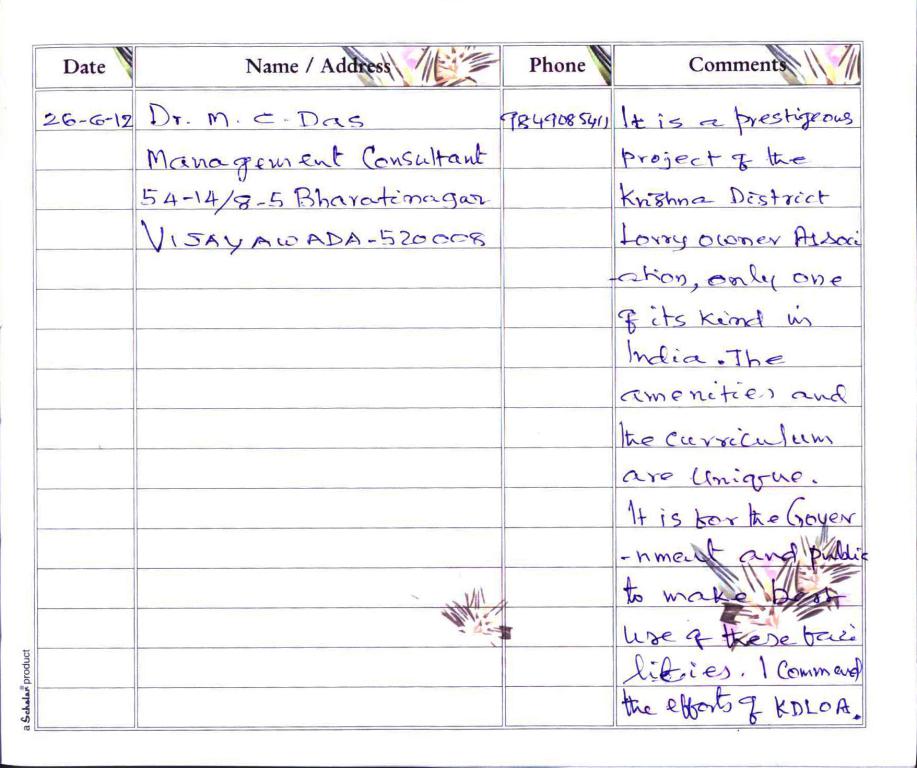 Date Name / Address Phone Comments
26-6-12 Dr. M. C. Das 9849085411 It is a prestigeous
Management Consultant project of the
54-14/8-5 Bharatinagar Krishna District
VIJAYAWADA-520008 Lorry owner Associ
-ation, only one
of its kind in
India. The
amenities and
the curriculum
are unique.
It is for the Gover
-nment and public
to make best
use of these faci
lities. I Commend
the efforts of KDLOA.
a Scholar product